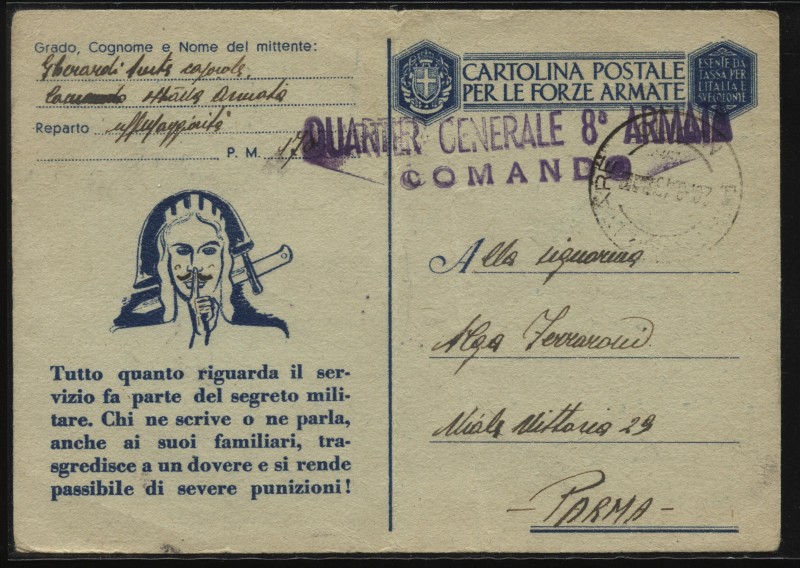 Grado, Cognome e Nome del mittente:
Gherardi
armata
Reparto
P. M.
Tutto quanto riguarda il ser-
vizio fa parte del segreto mili-
tare. Chi ne scrive o ne parla,
anche ai suoi familiari, tra-
sgredisce a un dovere e si rende
passibile di severe punizioni!
CARTOLINA POSTALE
PER LE FORZE ARMATE
ESENTE DA
TASSA PER
L'ITALIA E
SVE COLONIE
QUARTIER GENERALE 8° ARMATA
COMANDO
Alla signorina
Alga Ferraroni
Viale Vittoria 29
- PARMA -